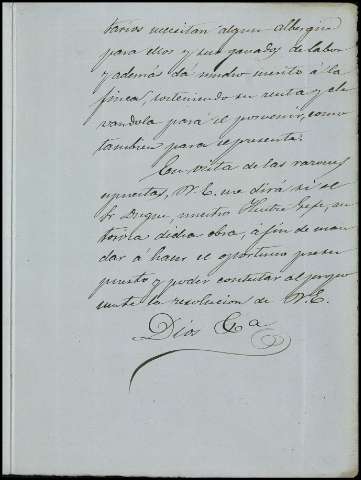 tarios necesitan algun albergue
para ellos y sus ganados de labor
y además dá mucho merito á la
finca, sosteniendo su renta y ele
vandola para el porvenir, como
tambien para el presente:
Con vista de las razones
expuestas, V. E. me dirá si el
Sr Duque, nuestro Ilustre Gefe, au
toriza dicha obra, a fin de man
dar á hacer el oportuno presu
puesto y poder contestar al
la resolucion de V. E.
Dios Ga